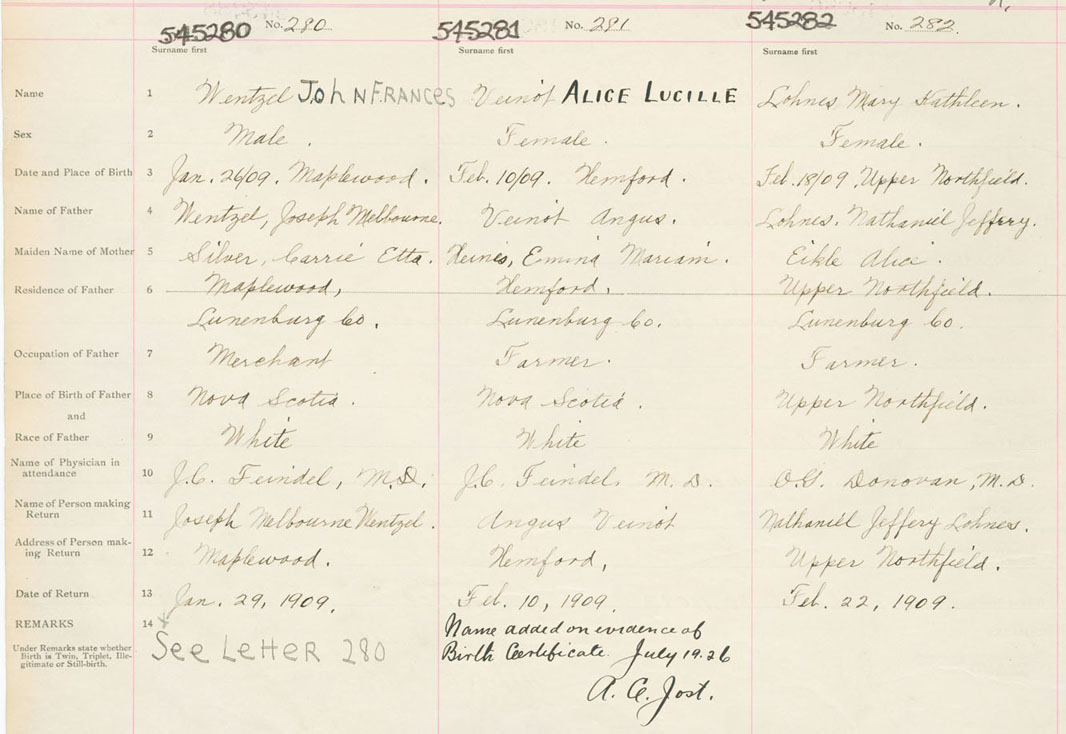 545280 No. 280 545281 No. 281 545282 No. 282.
Surname first Surname first Surname first
Name 1 Wentzel JohN FRANCES Veinot ALICE LUCILLE Lohnes Mary Kathleen.
Sex 2 Male. Female. Female.
Date and Place of Birth 3 Jan. 26/09. Maplewood. Feb. 10/09. Hemford. Feb. 18/09, Upper Northfield.
Name of Father 4 Wentzel, Joseph Melbourne. Veinot Angus. Lohnes. Nathaniel Jeffery.
Maiden Name of Mother 5 Silver, Carrie Etta. Heines, Emina Mariam. Eikle Alice.
Residence of Father 6 Maplewood, Hemford. Upper Northfield.
Lunenburg Co. Lunenburg Co. Lunenburg Co.
Occupation of Father 7 Merchant Farmer. Farmer.
Place of Birth of Father 8 Nova Scotia. Nova Scotia. Upper Northfield.
and
Race of Father 9 White White White
Name of Physician in
attendance 10 J.C. Feindel, M.D. J.C. Feindel. M.D. O.G. Donovan, M.D.
Name of Person making
Return 11 Joseph Melbourne Wentzel. Angus Veinot Nathaniel Jeffery Lohnes.
Address of Person mak-
ing Return 12 Maplewood. Hemford, Upper Northfield.
Date of Return 13 Jan. 29, 1909. Feb. 10, 1909. Feb. 22, 1909.
REMARKS 14 Name added on evidence of
Under Remarks state whether
Birth is Twin, Triplet, Ille-
gitimate or Still-birth. See LetteR 280 Birth Certificate. July 19.26
A. C. Jost.